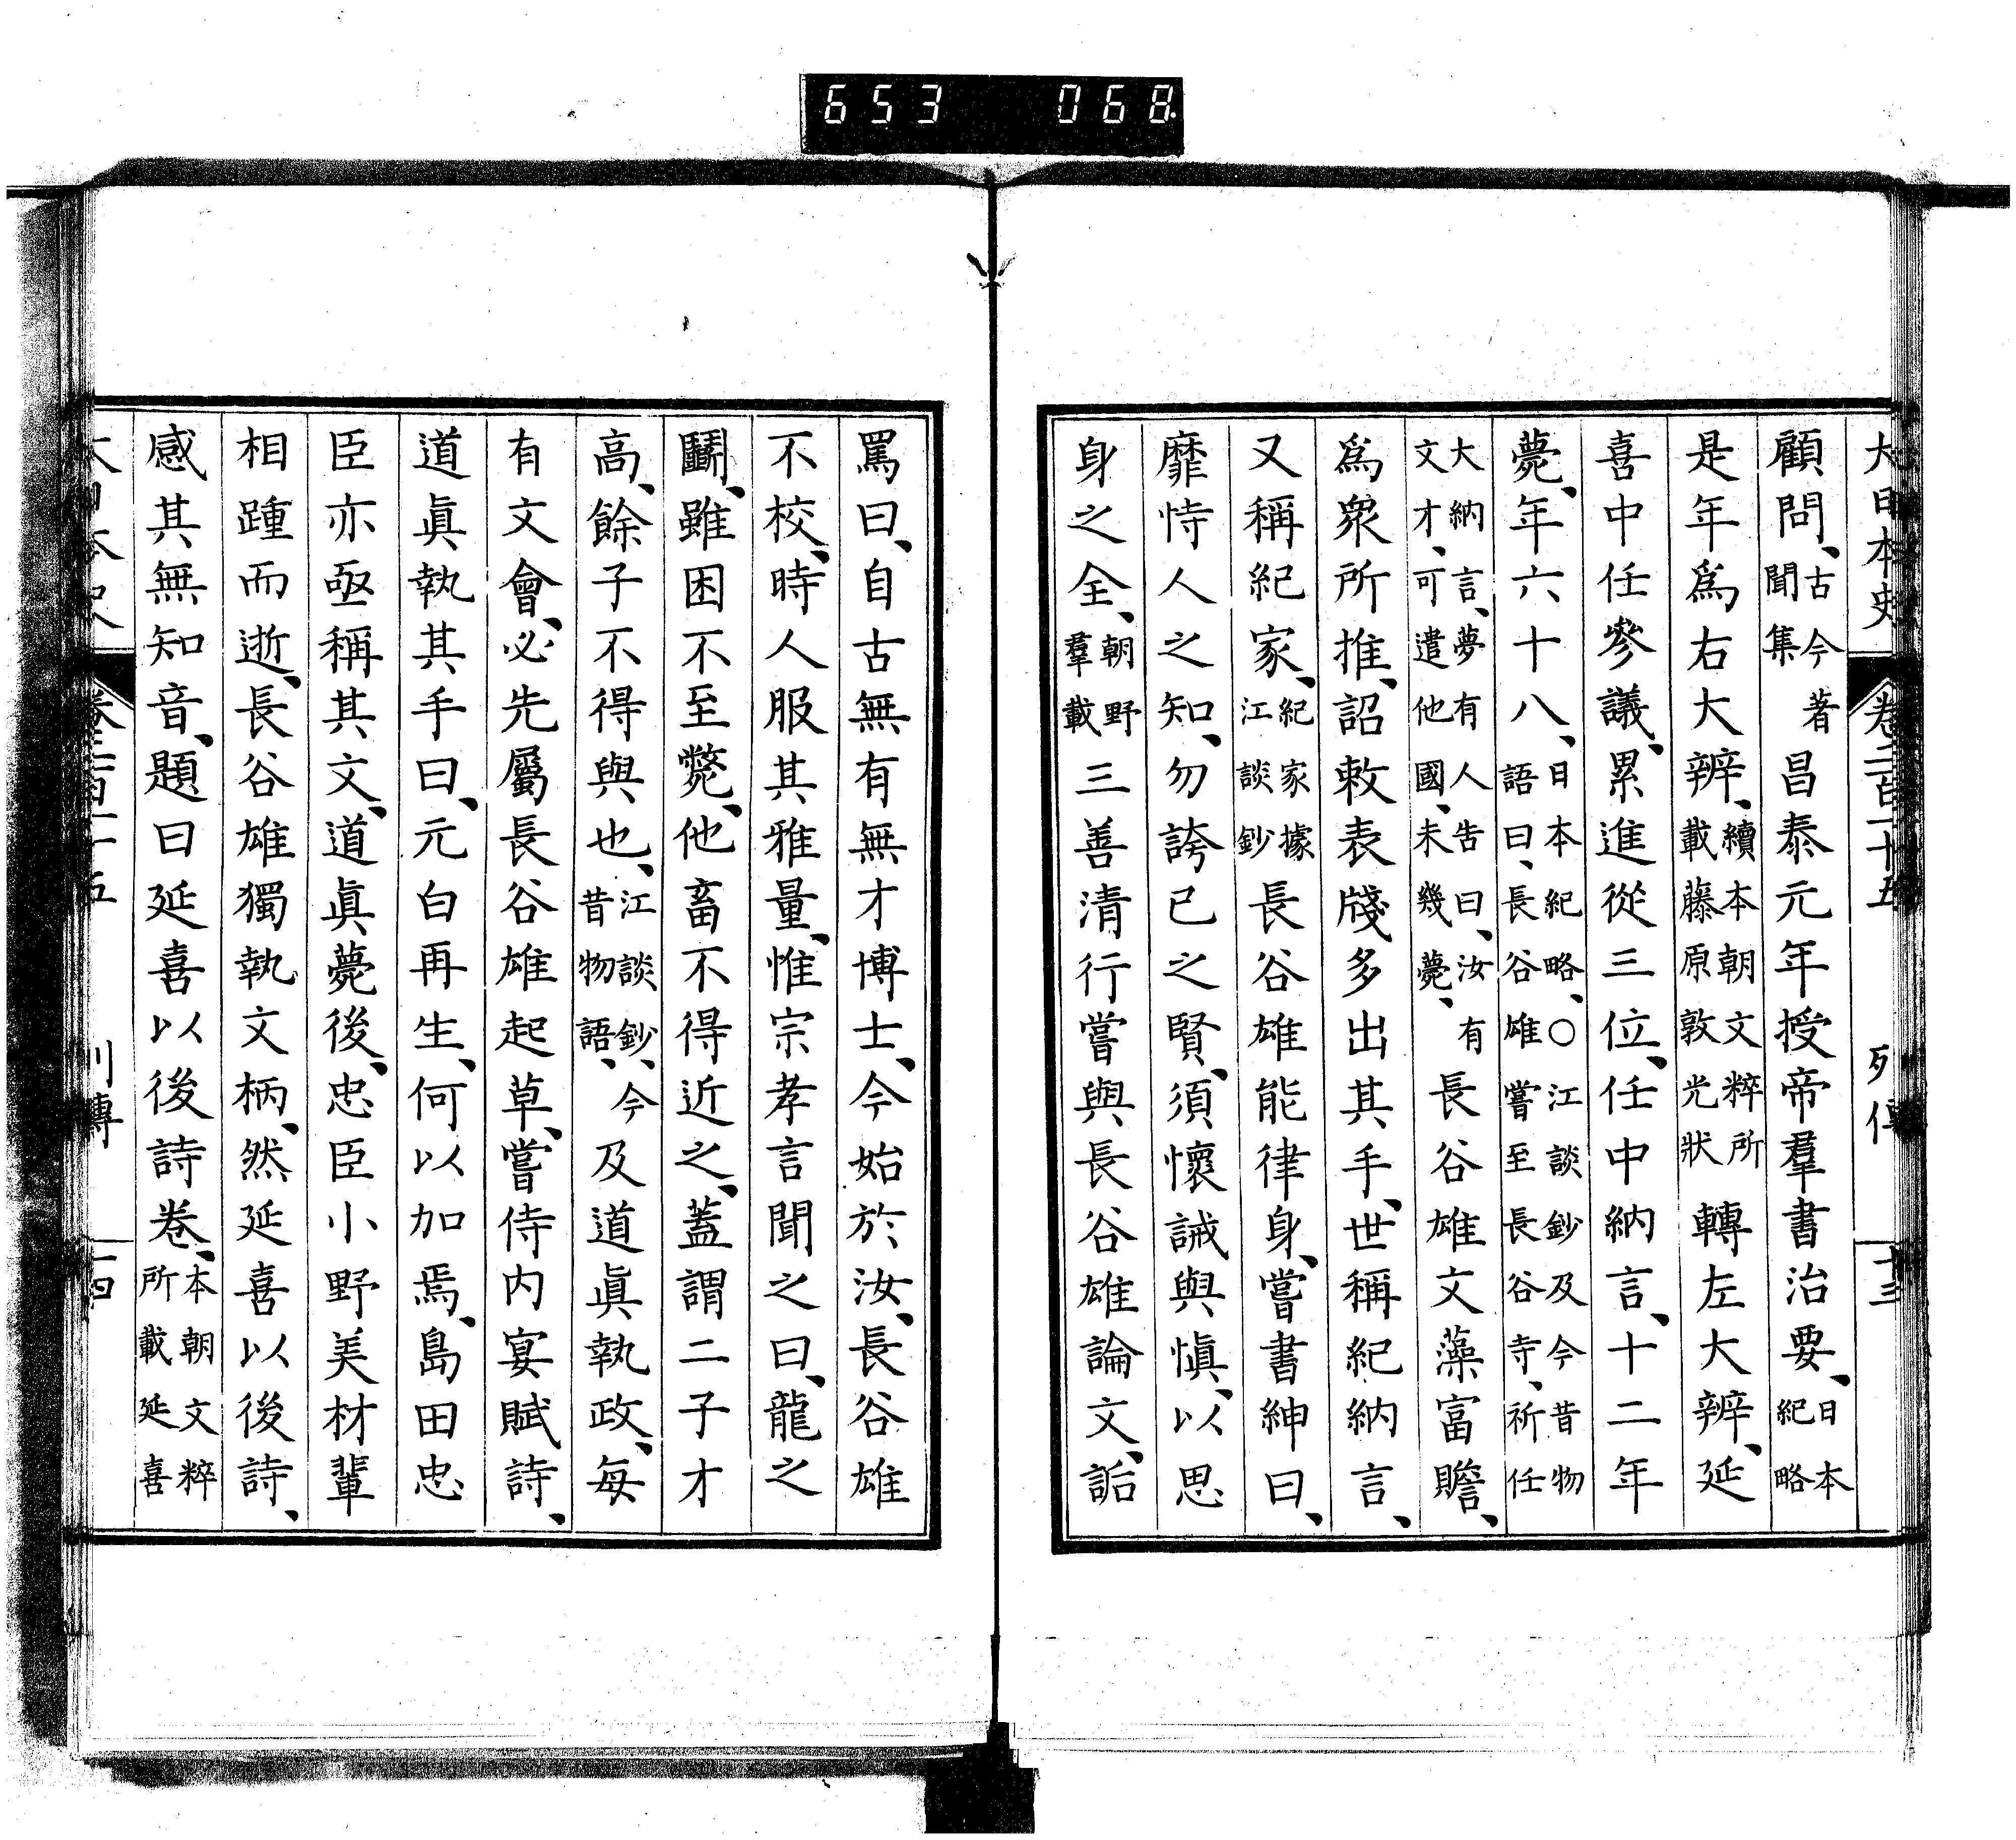 653 068
大日本史 卷二百十五 列傳 十三
顧問、古今著聞集 昌泰元年授帝羣書治要、日本紀略
是年爲右大辨、續本朝文粹所載藤原敦光狀 轉左大辨、延
喜中任參議、累進從三位、任中納言、十二年
薨、年六十八、日本紀略、〇江談鈔及今昔物語曰、長谷雄嘗至長谷寺、祈任
大納言、夢有人告曰、汝有文才、可遣他國、未幾薨、 長谷雄文藻富贍、
爲衆所推、詔敕表牋多出其手、世稱紀納言、
又稱紀家、紀家據江談鈔 長谷雄能律身、嘗書紳曰、
靡恃人之知、勿誇己之賢、須懷誡與愼、以思
身之全、朝野羣載 三善清行嘗與長谷雄論文、詬
罵曰、自古無有無才博士、今始於汝、長谷雄
不校、時人服其雅量、惟宗孝言聞之曰、龍之
鬭、雖困不至斃、他畜不得近之、蓋謂二子才
高、餘子不得與也、江談鈔、今昔物語、 及道眞執政、每
有文會、必先屬長谷雄起草、嘗侍内宴賦詩、
道眞執其手曰、元白再生、何以加焉、島田忠
臣亦亟稱其文、道眞薨後、忠臣小野美材輩
相踵而逝、長谷雄獨執文柄、然延喜以後詩、
感其無知音、題曰延喜以後詩卷、本朝文粹所載延喜